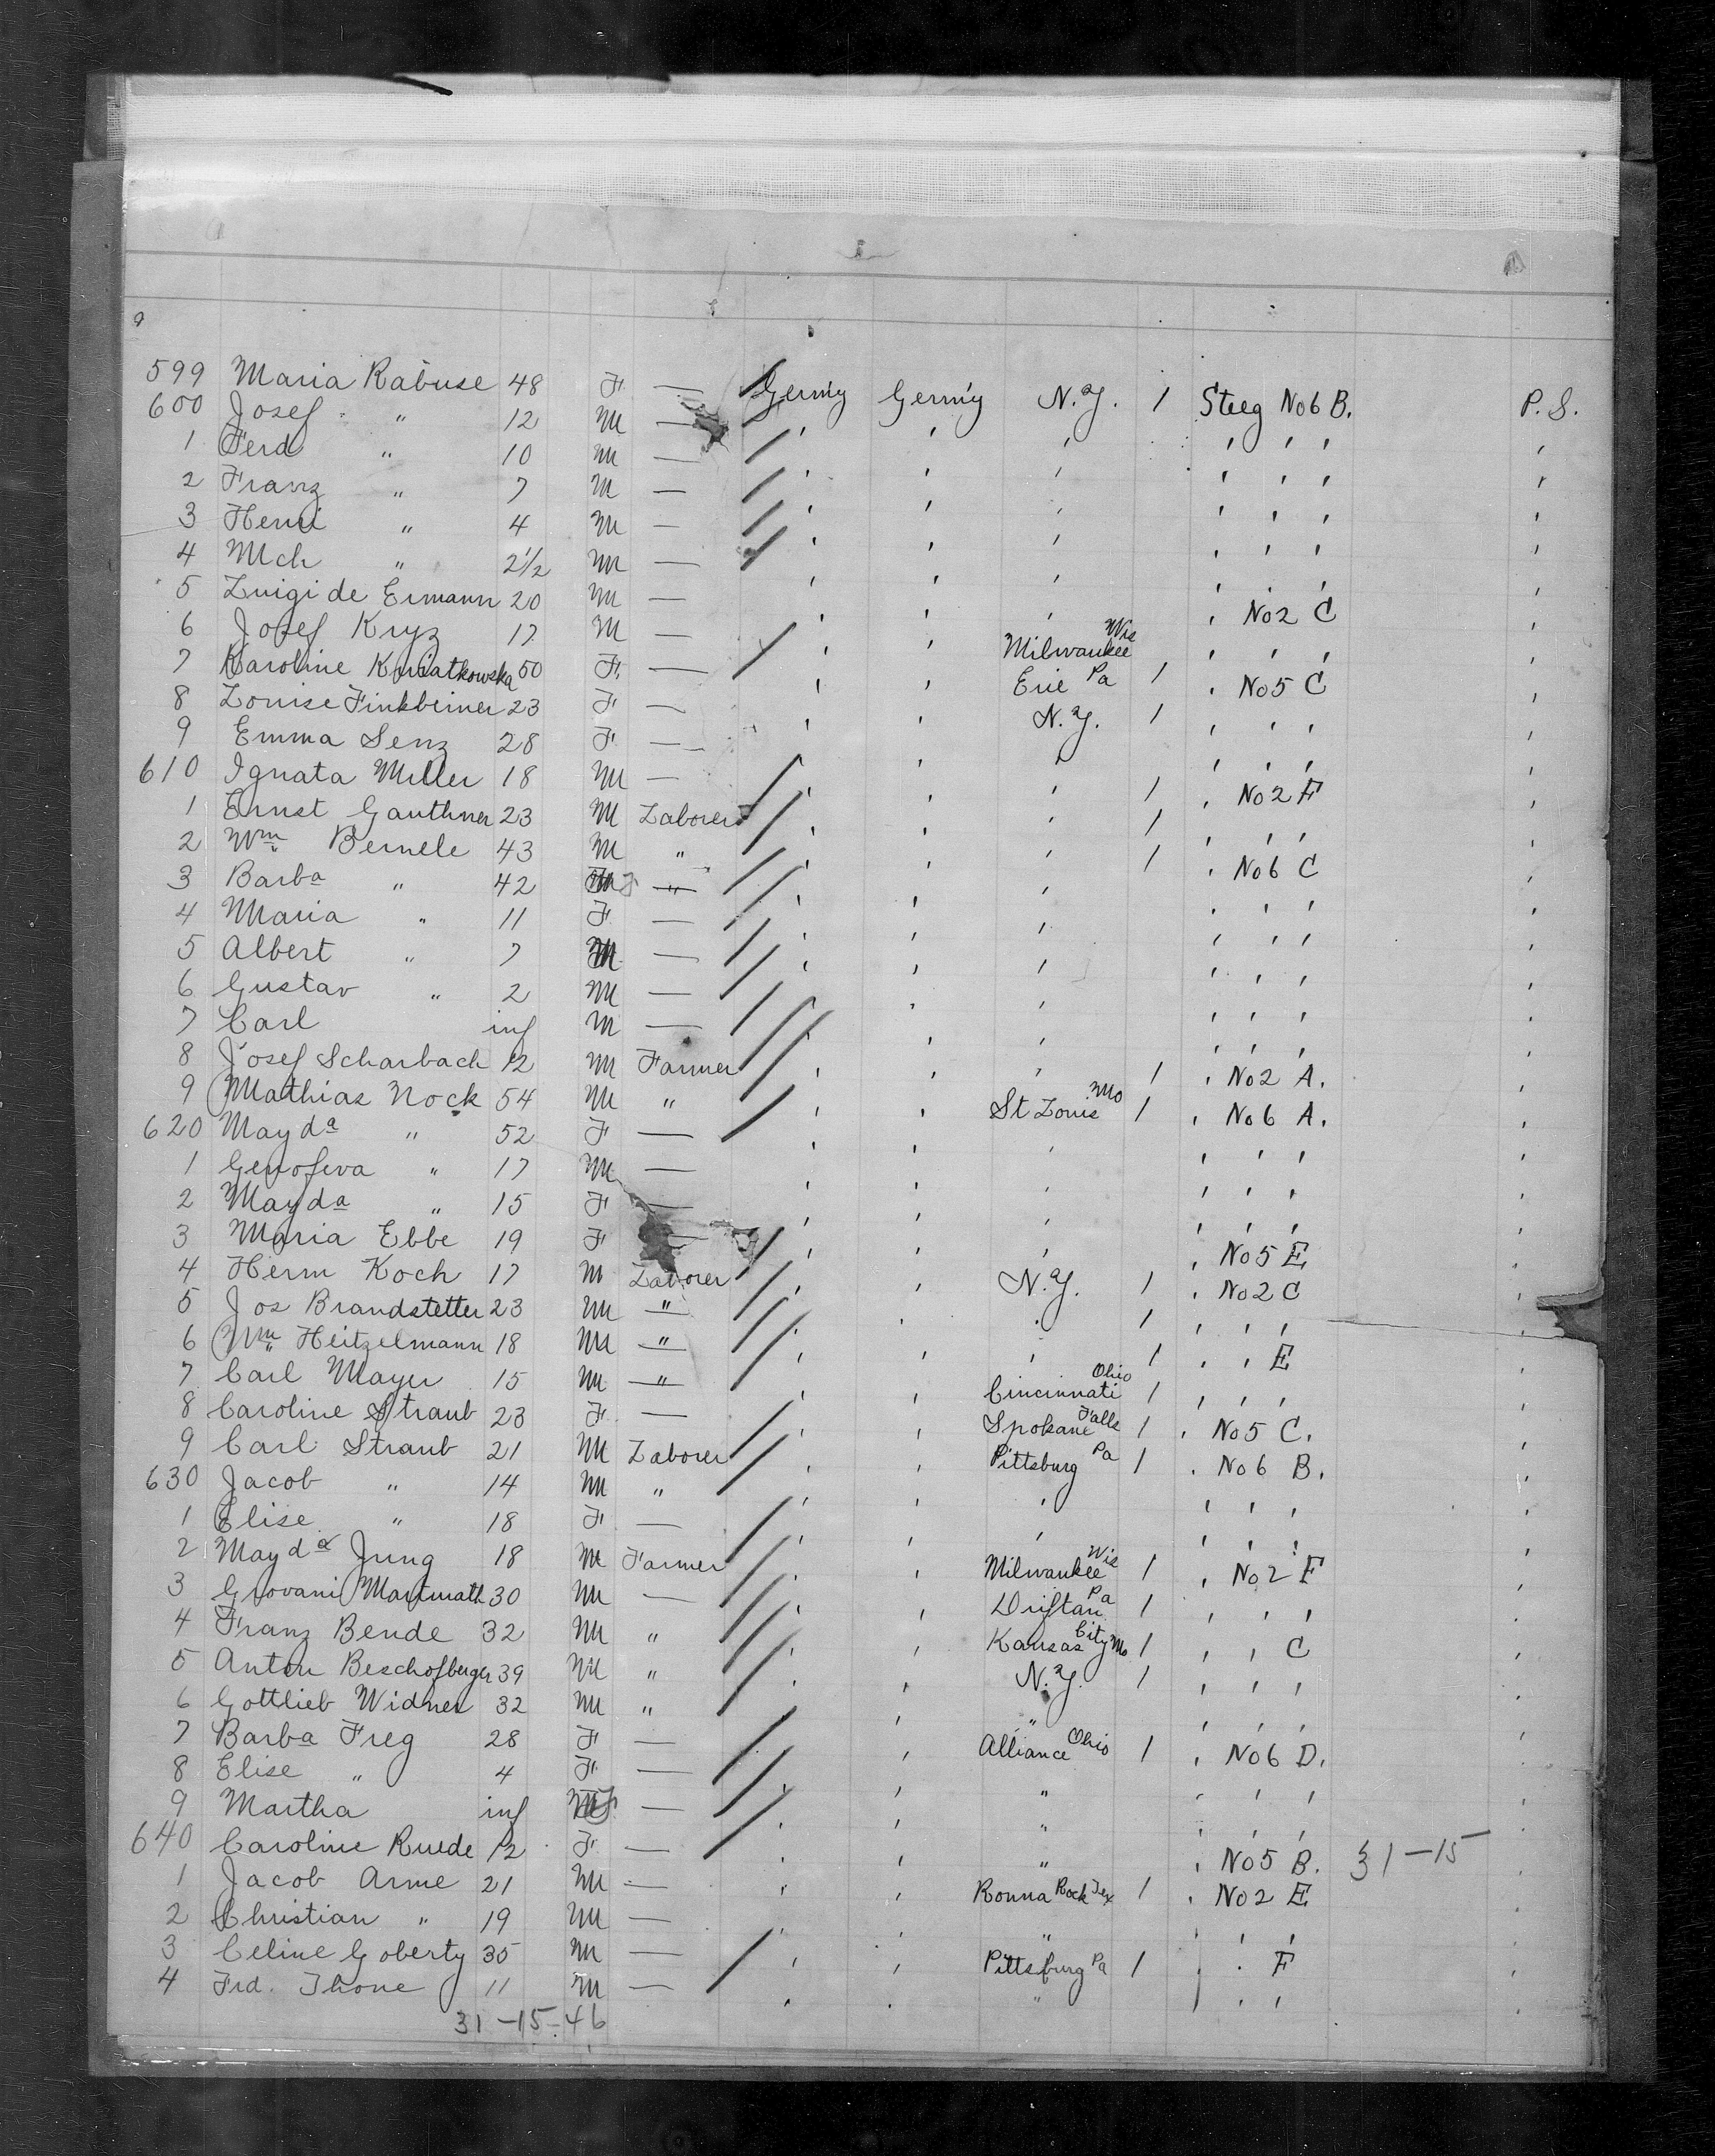 599 Maria Rabuse 48 F — Germ'y Germ'y N.Y. 1 Steeg No 6 B. P.S.
600 Josef " 12 M — ' ' ' ' ' ' '
1 Ferd " 10 M — ' ' ' ' ' ' '
2 Franz " 7 M — ' ' ' ' ' ' '
3 Henri " 4 M — ' ' ' ' ' ' '
4 Mch " 2 1/2 M — ' ' ' ' ' ' '
5 Luigi de Ermann 20 M — ' ' ' ' No 2 C '
6 Josef Kryz 17 M — ' ' Milwaukee Wis ' ' ' '
7 Karoline Kwiatkowska 50 F. — ' ' Erie Pa 1 ' No 5 C '
8 Louise Finkbeiner 23 F — ' ' N.Y. 1 ' ' ' '
9 Emma Senz 28 F — ' ' ' ' ' ' '
610 Ignata Miller 18 M — ' ' ' 1 ' No 2 F '
1 Ernst Gauthner 23 M Laborer ' ' ' 1 ' ' ' '
2 Wm Bernele 43 M " ' ' ' 1 ' No 6 C '
3 Barba " 42 F " ' ' ' ' ' ' '
4 Maria " 11 F — ' ' ' ' ' ' '
5 Albert " 7 M — ' ' ' ' ' ' '
6 Gustav " 2 M — ' ' ' ' ' ' '
7 Carl inf M — ' ' ' ' ' ' '
8 Josef Scharbach 12 M Farmer ' ' ' 1 ' No 2 A. '
9 Mathias Nock 54 M " ' ' St Louis Mo 1 ' No 6 A. '
620 Mayda " 52 F — ' ' ' ' ' ' '
1 Genofeva " 17 M — ' ' ' ' ' ' '
2 Mayda " 15 F — ' ' ' ' ' ' '
3 Maria Ebbe 19 F — ' ' ' ' No 5 E '
4 Herm Koch 17 M Laborer ' ' N.Y. 1 ' No 2 C '
5 Jos Brandstetter 23 M " ' ' ' 1 ' ' ' '
6 Wm Heitzelmann 18 M " ' ' ' 1 ' ' E '
7 Carl Mayer 15 M " ' ' Cincinnati Ohio 1 ' ' ' '
8 Caroline Straub 23 F — ' ' Spokane Falls 1 ' No 5 C. '
9 Carl Straub 21 M Laborer ' ' Pittsburg Pa 1 ' No 6 B. '
630 Jacob " 14 M " ' ' ' ' ' ' '
1 Elise " 18 F — ' ' ' ' ' ' '
2 Mayda Jung 18 M Farmer ' ' Milwaukee Wis 1 ' No 2 F '
3 Giovani 30 M — ' ' Driftan Pa 1 ' ' ' '
4 Franz Bende 32 M " ' ' Kansas City Mo 1 ' ' C '
5 Anton Beschofberger 39 M " ' ' N.Y. 1 ' ' ' '
6 Gottlieb Widner 32 M " ' ' " ' ' ' '
7 Barba Freg 28 F — ' ' Alliance Ohio 1 ' No 6 D. '
8 Elise " 4 F — ' ' " ' ' ' '
9 Martha inf F — ' ' " ' ' ' '
640 Caroline Ruede 12 F — ' ' " ' No 5 B. 31-15 '
1 Jacob Arme 21 M — ' ' Ronna Rock Tex 1 ' No 2 E '
2 Christian " 19 M — ' ' " ' ' ' '
3 Celine Goberty 35 M — ' ' Pittsburg Pa 1 ' ' F '
4 Frd. Thone 11 M — ' ' " ' ' ' '
31-15-46